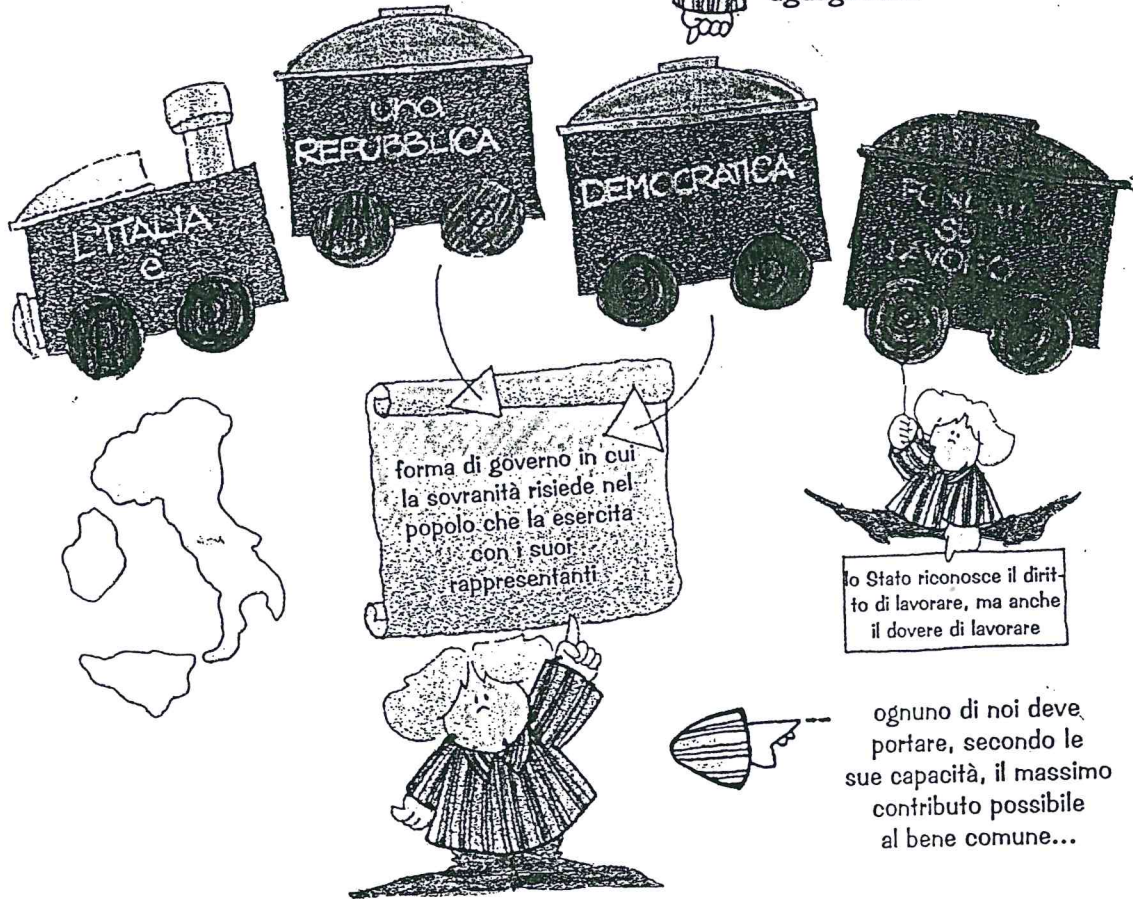 L'ITALIA
è
una
REPUBBLICA
DEMOCRATICA
SUL
LAVORO
forma di governo in cui
la sovranità risiede nel
popolo che la esercita
con i suoi
rappresentanti
lo Stato riconosce il dirit-
to di lavorare, ma anche
il dovere di lavorare
ognuno di noi deve
portare, secondo le
sue capacità, il massimo
contributo possibile
al bene comune...